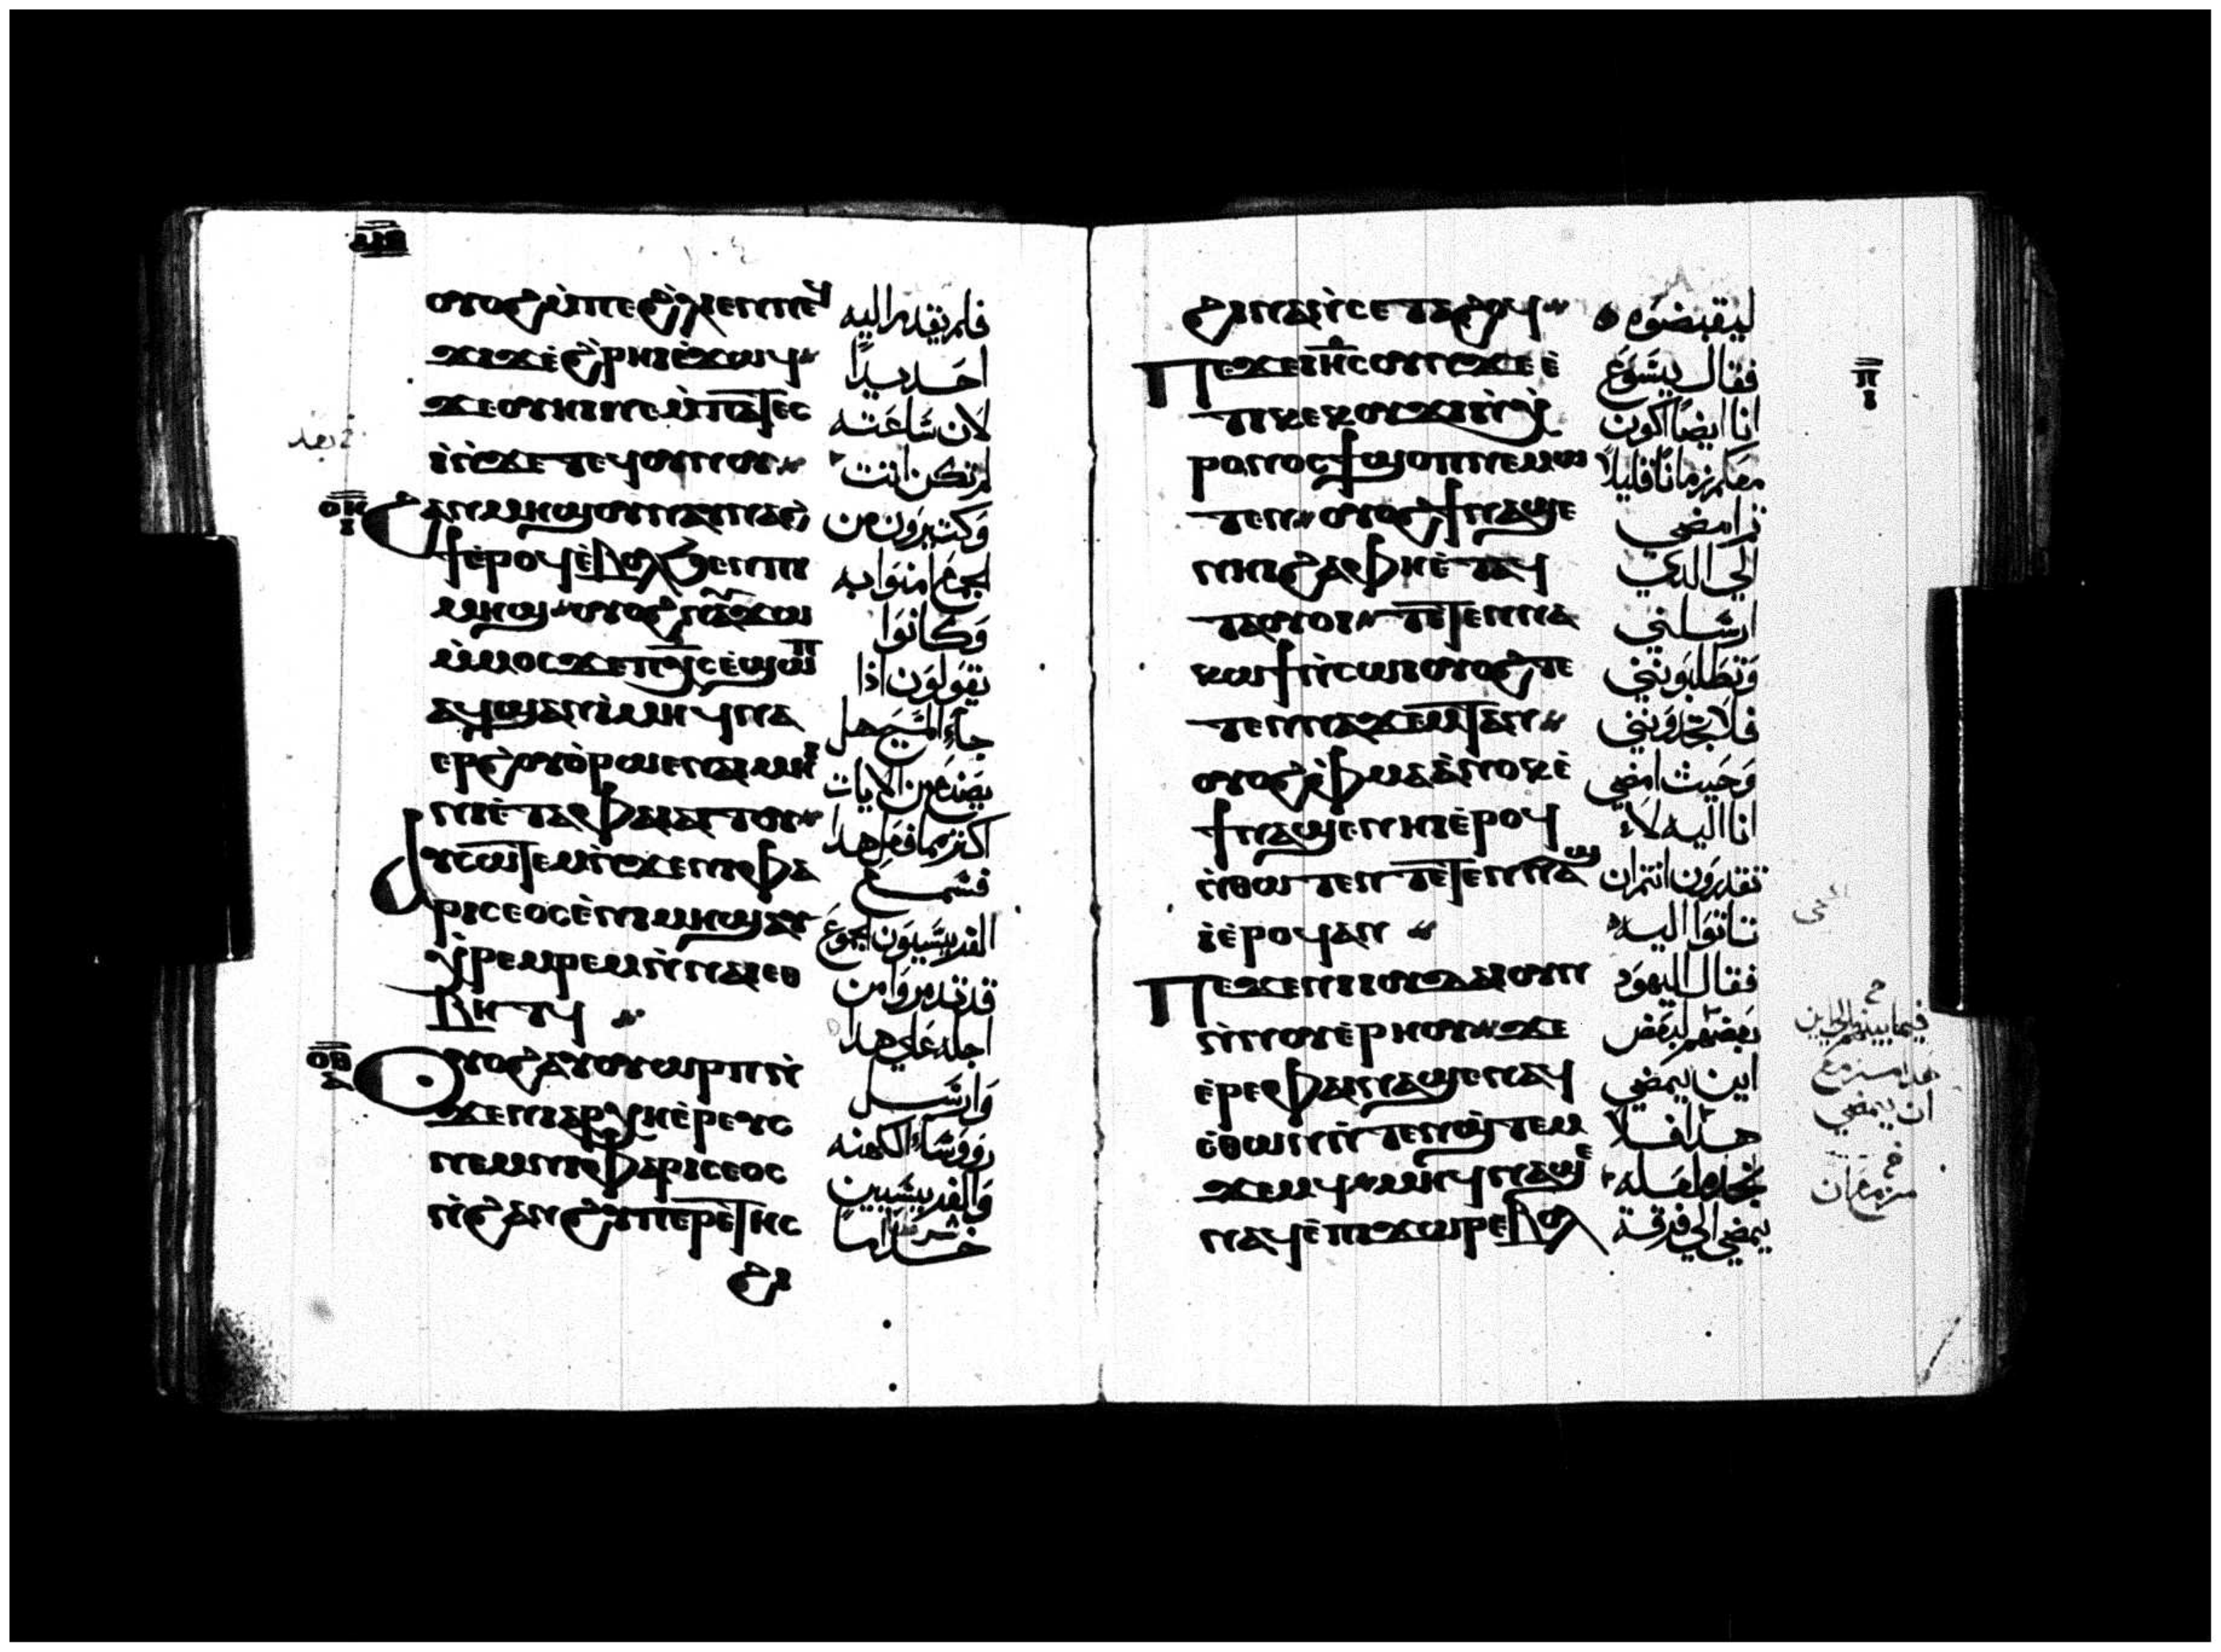 ⲟⲩⲟϩ ⲙ̀ⲡⲉ ϩ̀ⲗⲓ ⲉⲛ ⲛⲉϥ
ϫⲓϫ ⲉ̀ϩ̀ⲣⲏⲓ ⲉ̀ϫⲱϥ
ϫⲉ ⲟⲩⲏⲓ ⲛⲉ ⲙ̀ⲡⲁⲧⲉⲥ
ⲓ̀ ⲛ̀ϫⲉ ⲧⲉϥⲟⲩⲛⲟⲩ
ϩⲁⲛⲙⲏϣ ⲟⲩⲛ ⲁⲩⲛⲁϩ
ϯ ⲉ̀ⲣⲟϥ ⲉ̀ⲃⲟⲗ ϧⲉⲛ ⲡⲓ
ⲙⲏϣ ⲟⲩⲟϩ ⲛⲁⲩϫⲱ
ⲙ̀ⲙⲟⲥ ϫⲉ ⲡⲭ̅ⲥ̅ ⲉ̀ϣⲱⲡ
ⲁϥϣⲁⲛⲓ̀ ⲙⲏ ϥⲛⲁ
ⲉⲣ ϩ̀ⲟⲩⲟ̀ ⲣⲱ ⲉⲛⲁⲓⲙⲏⲓ
ⲛⲓ ⲉ̀ⲧⲁ ⲫⲁⲓ ⲁⲓⲧⲟⲩ
ⲁⲩⲥⲱⲧⲉⲙ ⲛ̀ϫⲉ ⲛⲓⲫⲁ
ⲣⲓⲥⲉⲟⲥ ⲉ̀ⲡⲓⲙⲏϣ ⲁⲩ
ⲭ̀ⲣⲉⲙⲣⲉⲙ ⲛ̀ⲛⲁⲓ ⲉⲑ
ⲃⲏⲧϥ
ⲟⲩⲟϩ ⲁⲩⲟⲩⲱⲣⲡ ⲛ̀
ϫⲉ ⲛⲓⲁⲣⲭⲏⲉ̀ⲣⲉⲩⲥ
ⲛⲉⲙ ⲛⲓⲫⲁⲣⲓⲥⲉⲟⲥ
ⲛ̀ϩⲁⲛϩⲩⲡⲉⲣⲉⲧⲏⲥ
ϩⲓ
فلم يقدم اليه
احد يدًا
لان ساعته
لم تكن اتت
وكثيرون من
الجمع امنوا به
وكانوا
يقولون اذا
جاء المسيح هل
يصنع من الايات
اكثر مما فعل هدا
فسمع
الفريسيون الجموع
قد تدمروا من
اجله علي هدا
وارسل
رووساء الكهنه
والفريسيين
خداما
ⲟⲏ
ⲓ
ⲟⲑ
ⲁ
ϩⲓⲛⲁ ⲛ̀ⲥⲉⲧⲁϩⲟϥ
ⲡⲉϫⲉ ⲓⲏⲥ ⲟⲩⲛ ϫⲉ ⲉ̀
ⲧⲓ ⲕⲉⲕⲟⲩϫⲓ ⲛ̀ⲭ̀
ⲣⲟⲛⲟⲥ ϯϣⲟⲡ ⲛⲉⲙⲱ
ⲧⲉⲛ ⲟⲩⲟϩ ϯⲛⲁϣⲉ
ⲛⲏⲓ ϩⲁ ⲫⲏ ⲉ̀ⲧⲁϥ
ⲧⲁⲟⲩⲟⲓ ⲧⲉⲧⲉⲛⲛⲁ
ⲕⲱϯ ⲛ̀ⲥⲱⲓ ⲟⲩⲟϩ ⲧⲉ
ⲧⲉⲛⲛⲁϫⲉⲙⲧ ⲁⲛ
ⲟⲩⲟϩ ⲫ̀ⲙⲁ ⲁ̀ⲛⲟⲕ ⲉ̀
ϯⲛⲁϣⲉ ⲛⲏⲓ ⲉ̀ⲣⲟϥ
ⲛ̀ⲑⲱⲧⲉⲛ ⲧⲉⲧⲉⲛⲛⲁϣ
ⲓ̀ ⲉ̀ⲣⲟϥ ⲁⲛ
ⲡⲉϫⲉ ⲛⲓⲓⲟⲩⲇⲁⲓ ⲟⲩⲛ
ⲛ̀ⲛⲟⲩⲉ̀ⲣⲏⲟⲩ ϫⲉ
ⲉ̀ⲣⲉ ⲫⲁⲓ ⲛⲁϣⲉ ⲛⲁϥ
ⲉ̀ⲑⲱⲛ ⲛ̀ⲧⲉⲛϣ̀ⲧⲉⲙ
ϫⲉⲙϥ ⲙⲏ ϥⲛⲁϣⲉ
ⲛⲁϥ ⲉ̀ⲡϫⲱⲣ ⲉ̀ⲃⲟⲗ
ليقبضوه
فقال يسوع
انا ايضًا اكون
معكم زمانًا قليلًا
ثم امضي
الي الدي
ارسلني
وتطلبونني
فلا تجدونني
وحيث امضي
انا اليه لا
تقدرون انتم ان
تاتوا اليه
فقال اليهود
بعضهم لبعض
اين يمضي
هدا فلا
نجده لعله
يمضي الي فرقة
ⲡ
ⲓ
ان يمضي